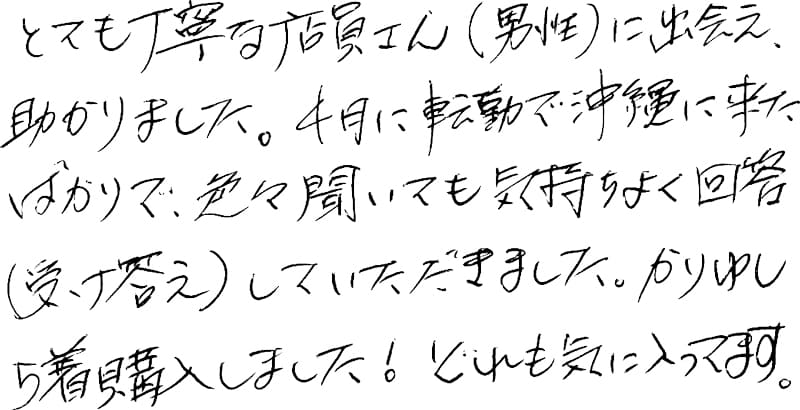 とても丁寧な店員さん(男性)に出会え、
助かりました。4月に転勤で沖縄に来た
ばかりで、色々聞いても気持ちよく回答
(受け答え)していただきました。かりゆし
5着購入しました!どれも気に入ってます。